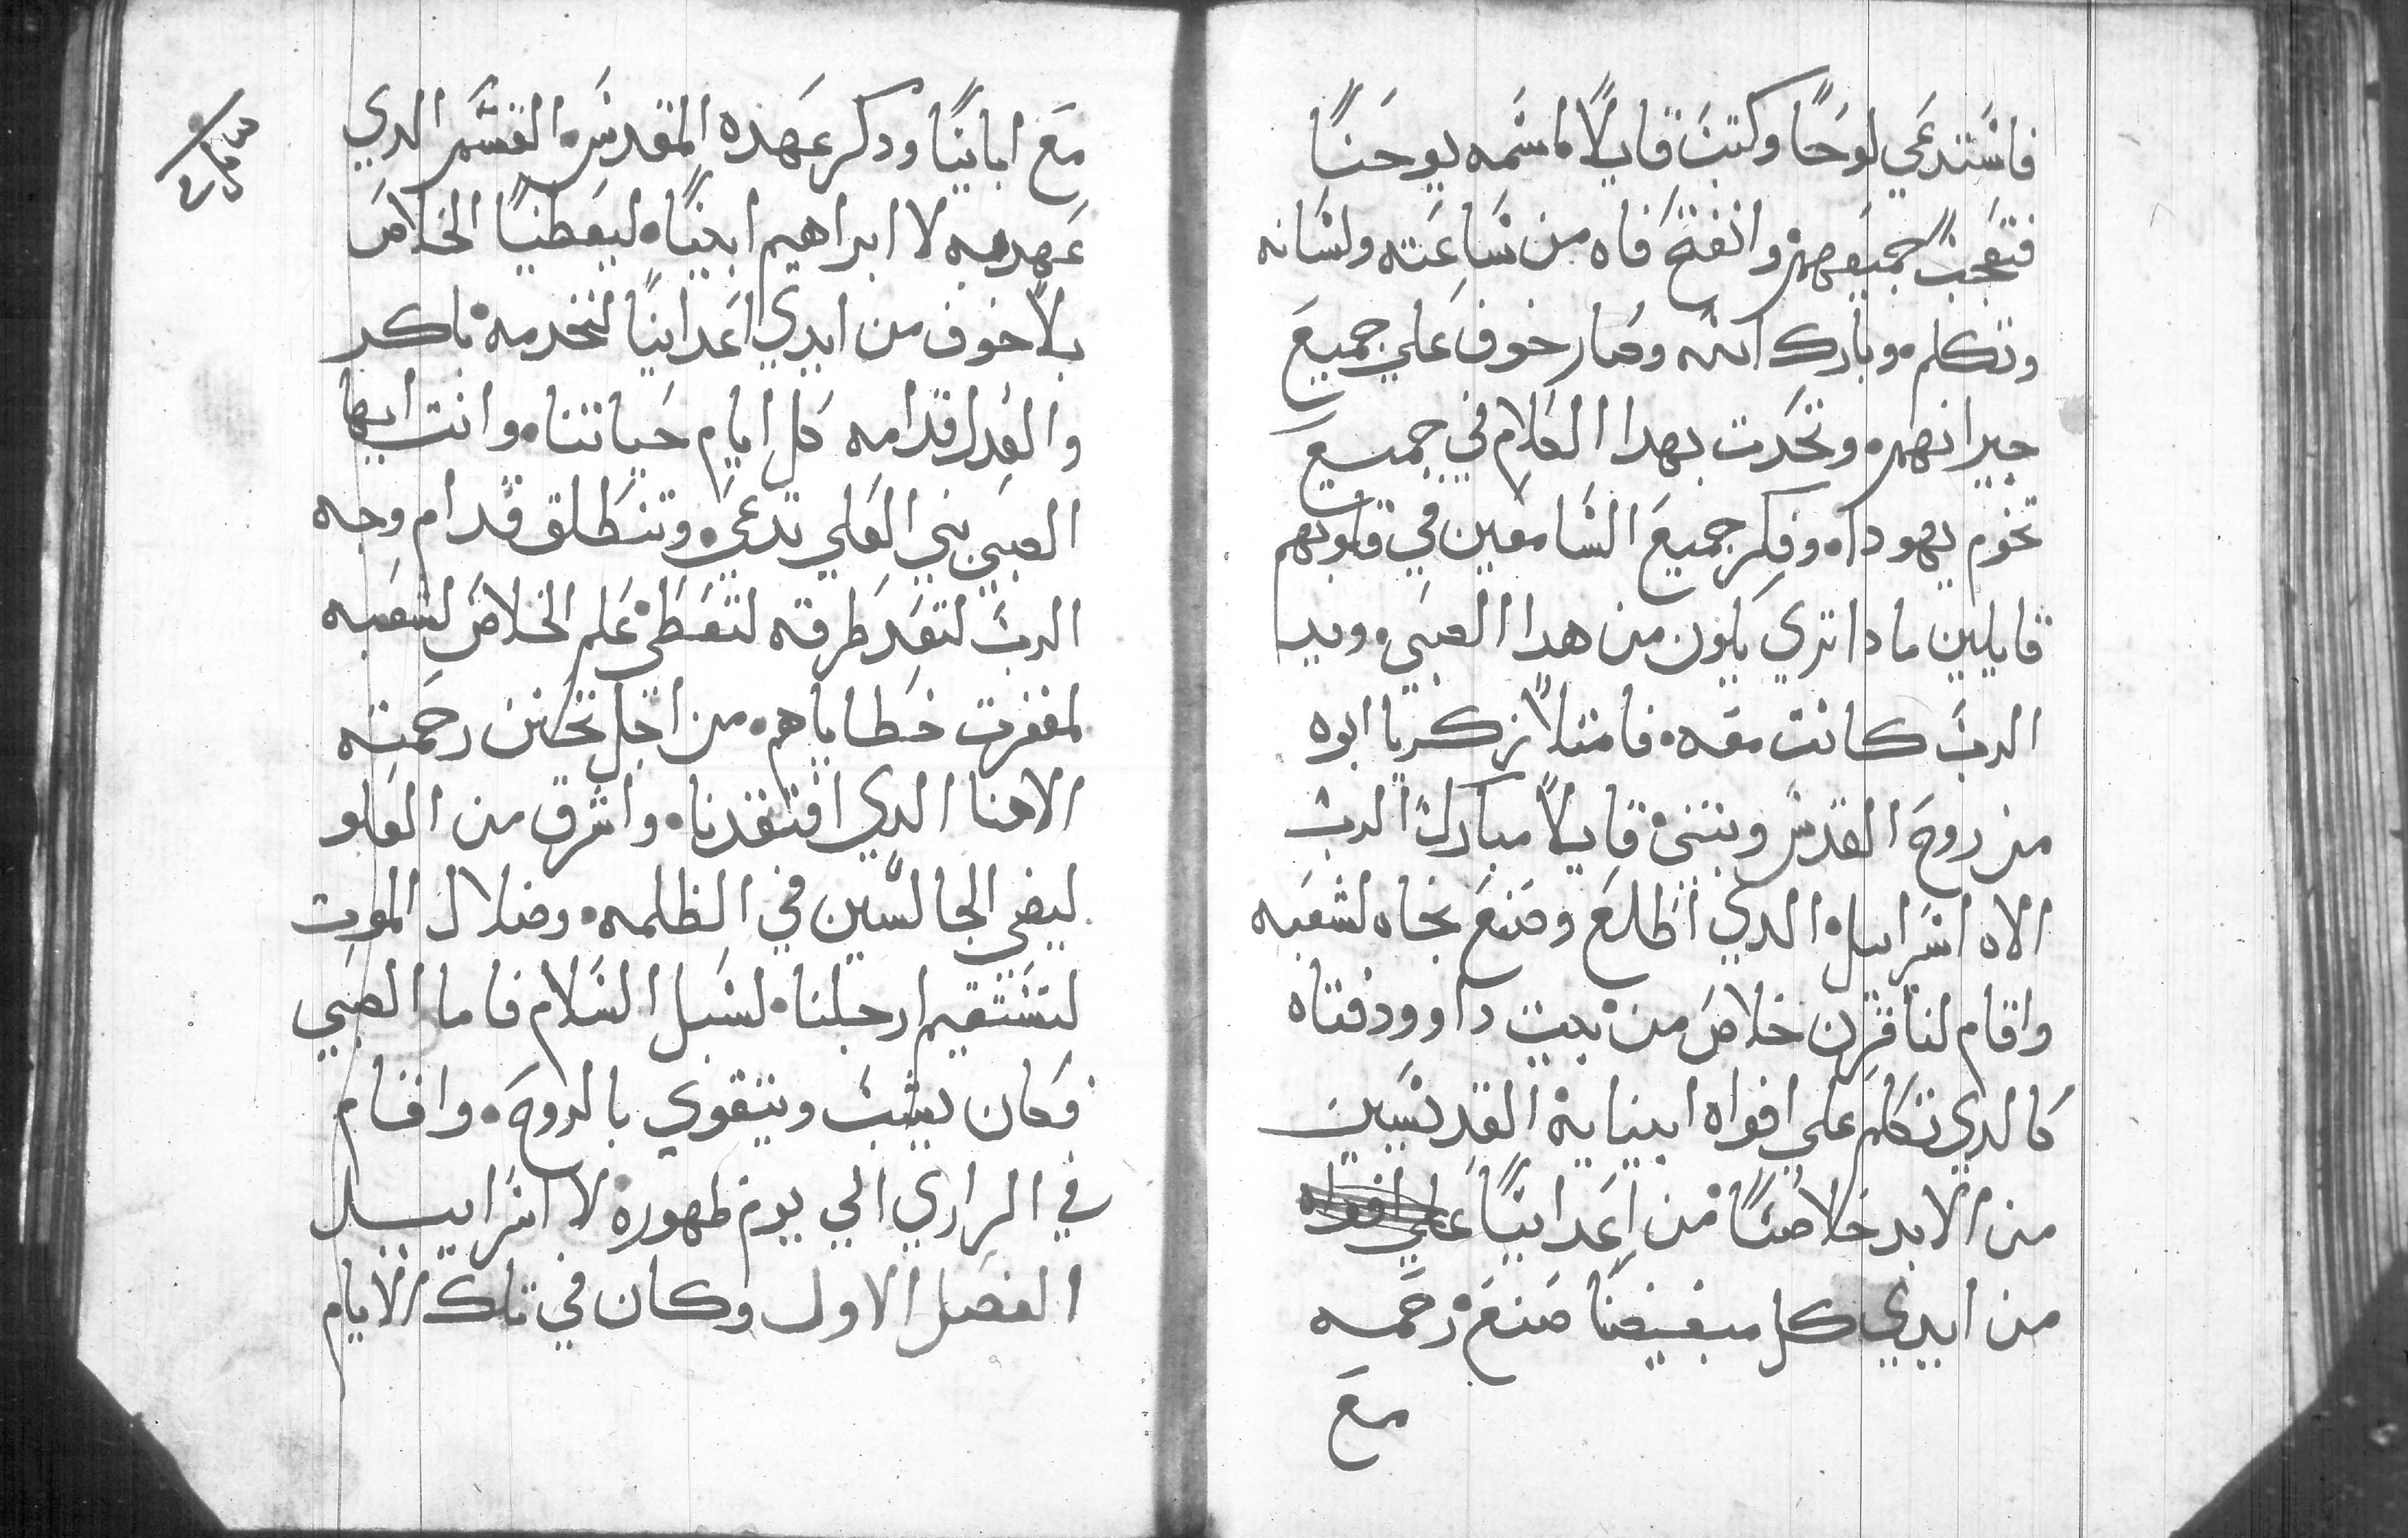 فاستدعي لوحًا وكتب قايلًا اسمه يوحنًا
فتعجب جميعهم وانفتح فاه من ساعته ولسانه
وتكلم وبارك الله وصار خوف علي جميع
جيرانهم وتحدت بهدا الكلام في جميع
تخوم يهوداه وفكر جميع السامعين في قلوبهم
قايلين مادا تري يكون من هدا الصبي ويد
الرب كانت معه فامتلا زكريا ابوه
من روح القدس وتنبئ قايلًا مبارك الرب
الاه اسراييل الدي اطلع وصنع نجاه لشعبه
واقام لنا قرن خلاص من بيت داوود فتاه
كالدي تكلم علي افواه انبيايه القديسين
من الابد خلاصنًا من اعداينًا علي افواه
من ايدي كل مبغضينا صنع رحمه
مع
مع اباينًا ودكر عهده المقدس القسم الدي
عهد به لا ابراهيم ابينًا ليعطينًا الخلاص
بلا خوف من ايدي اعداينًا لنخدمه باكر
والعدل قدامه كل ايام حياتنا وانت ايها
الصبي نبي العلي تدعي وتنطلق قدام وجه
الرب لتعد طرقه لتعطي علم الخلاص لشعبه
لمغفرت خطاياهم من اجل تحنن رحمته
الاهنا الدي افتقدنا واشرق من العلو
ليضي الجالسين في الظلمه وضلال الموت
لتستقيم ارجلنا لسبل السلام فاما الصبي
فكان يشب ويتقوي بالروح واقام
في البراري الي يوم ظهوره لا اسراييل
الفصل الاول وكان في تلك الايام